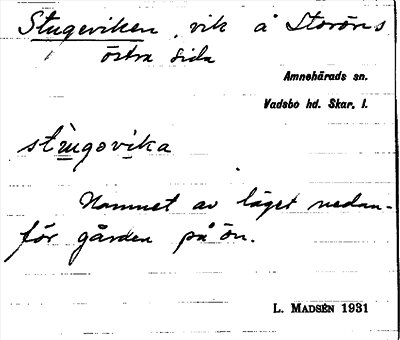 Stugeviken, vik å Storöns
östra sida
Amnehärads sn.
Vadsbo hd. Skar. l.
stùgovika
Namnet av läget nedan-
för gården på ön.
L. MADSÉN 1931